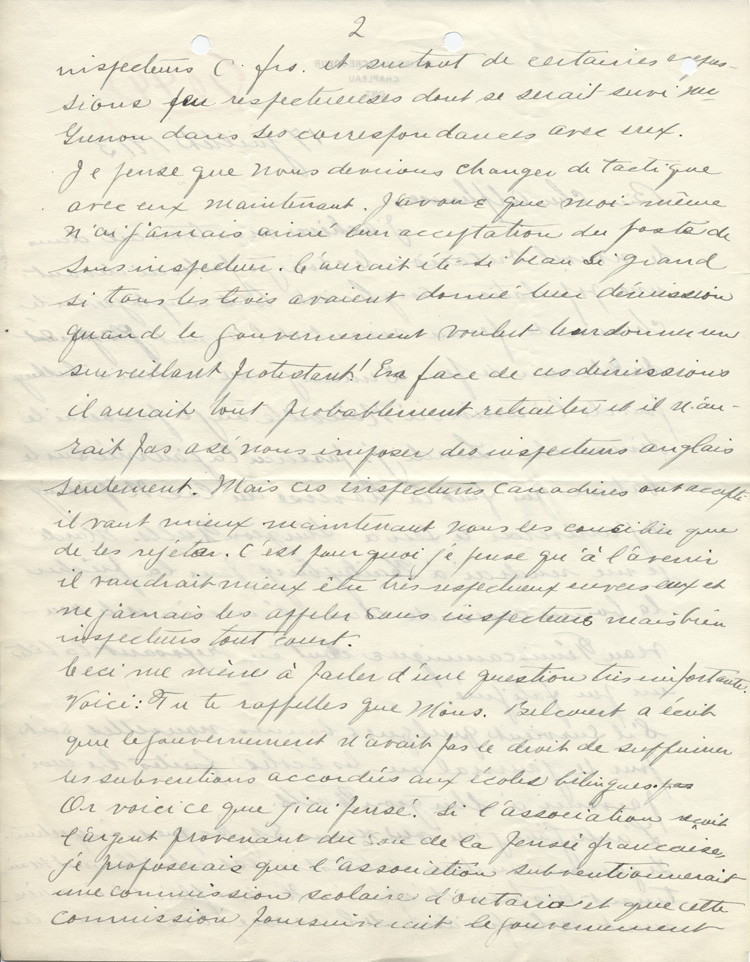 2
inspecteurs C. frs. et surtout de certaines expres-
sions peu respectueuses dont se serait servi Mr
Grenon dans ses correspondances avec eux.
Je pense que nous devrions changer de tactique
avec eux maintenant. J'avoue que moi-même
n'ai jamais aimé leur acceptation du poste de
sousinspecteur. C'aurait été si beau si grand
si tous les trois avaient donné leur démission
quand le gouvernement voulut leur donner un
surveillant protestant! En face de ces démissions
il aurait tout probablement retraiter et il n'au-
rait pas osé nous imposer des inspecteurs anglais
seulement. Mais ces inspecteurs Canadiens ont accepté
il vaut mieux maintenant nous les concilier que
de les rejeter. C'est pourquoi je pense qu'à l'avenir
il vaudrait mieux être très respectueux envers eux et
ne jamais les appeler sous inspecteurs mais bien
inspecteurs tout court.
Ceci me mène à parler d'une question très importante.
Voici: Tu te rappelles que Mons. Belcourt a écrit
que le gouvernement n'avait pas le droit de supprimer
les subventions accordées aux écoles bilingues.
Or voici ce que j'ai pensé. Si l'association reçoit
l'argent provenant du sou de la pensée française,
je proposerais que l'association subventionnerait
une commission scolaire d'ontario et que cette
commission poursuivrait le gouvernement